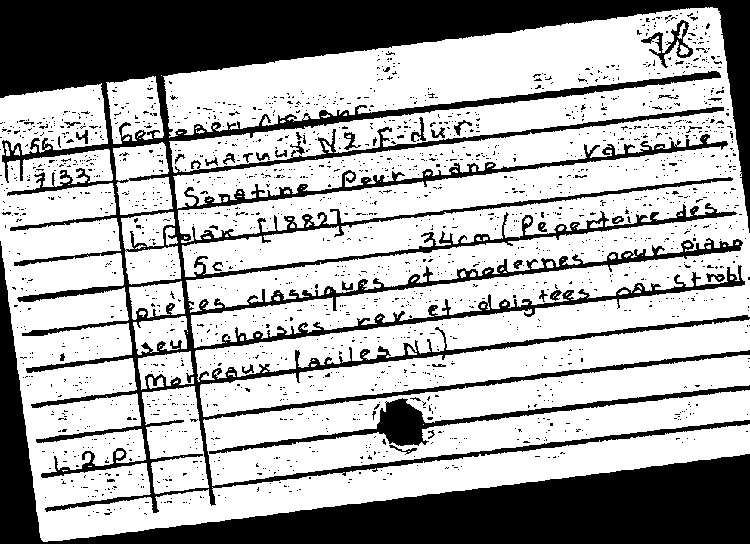 78
М561-4 Бетховен, Людвиг
11 7133 Сонатина N2 F-dur
Sonatine pour piano. Varsovie
L. Polak [1882]
5c. 34cm (Répertoire des
pièces classiques et modernes pour piano
seul choisies rev. et doigtées par Strobl.
Morceaux faciles N1)
L 2 p.